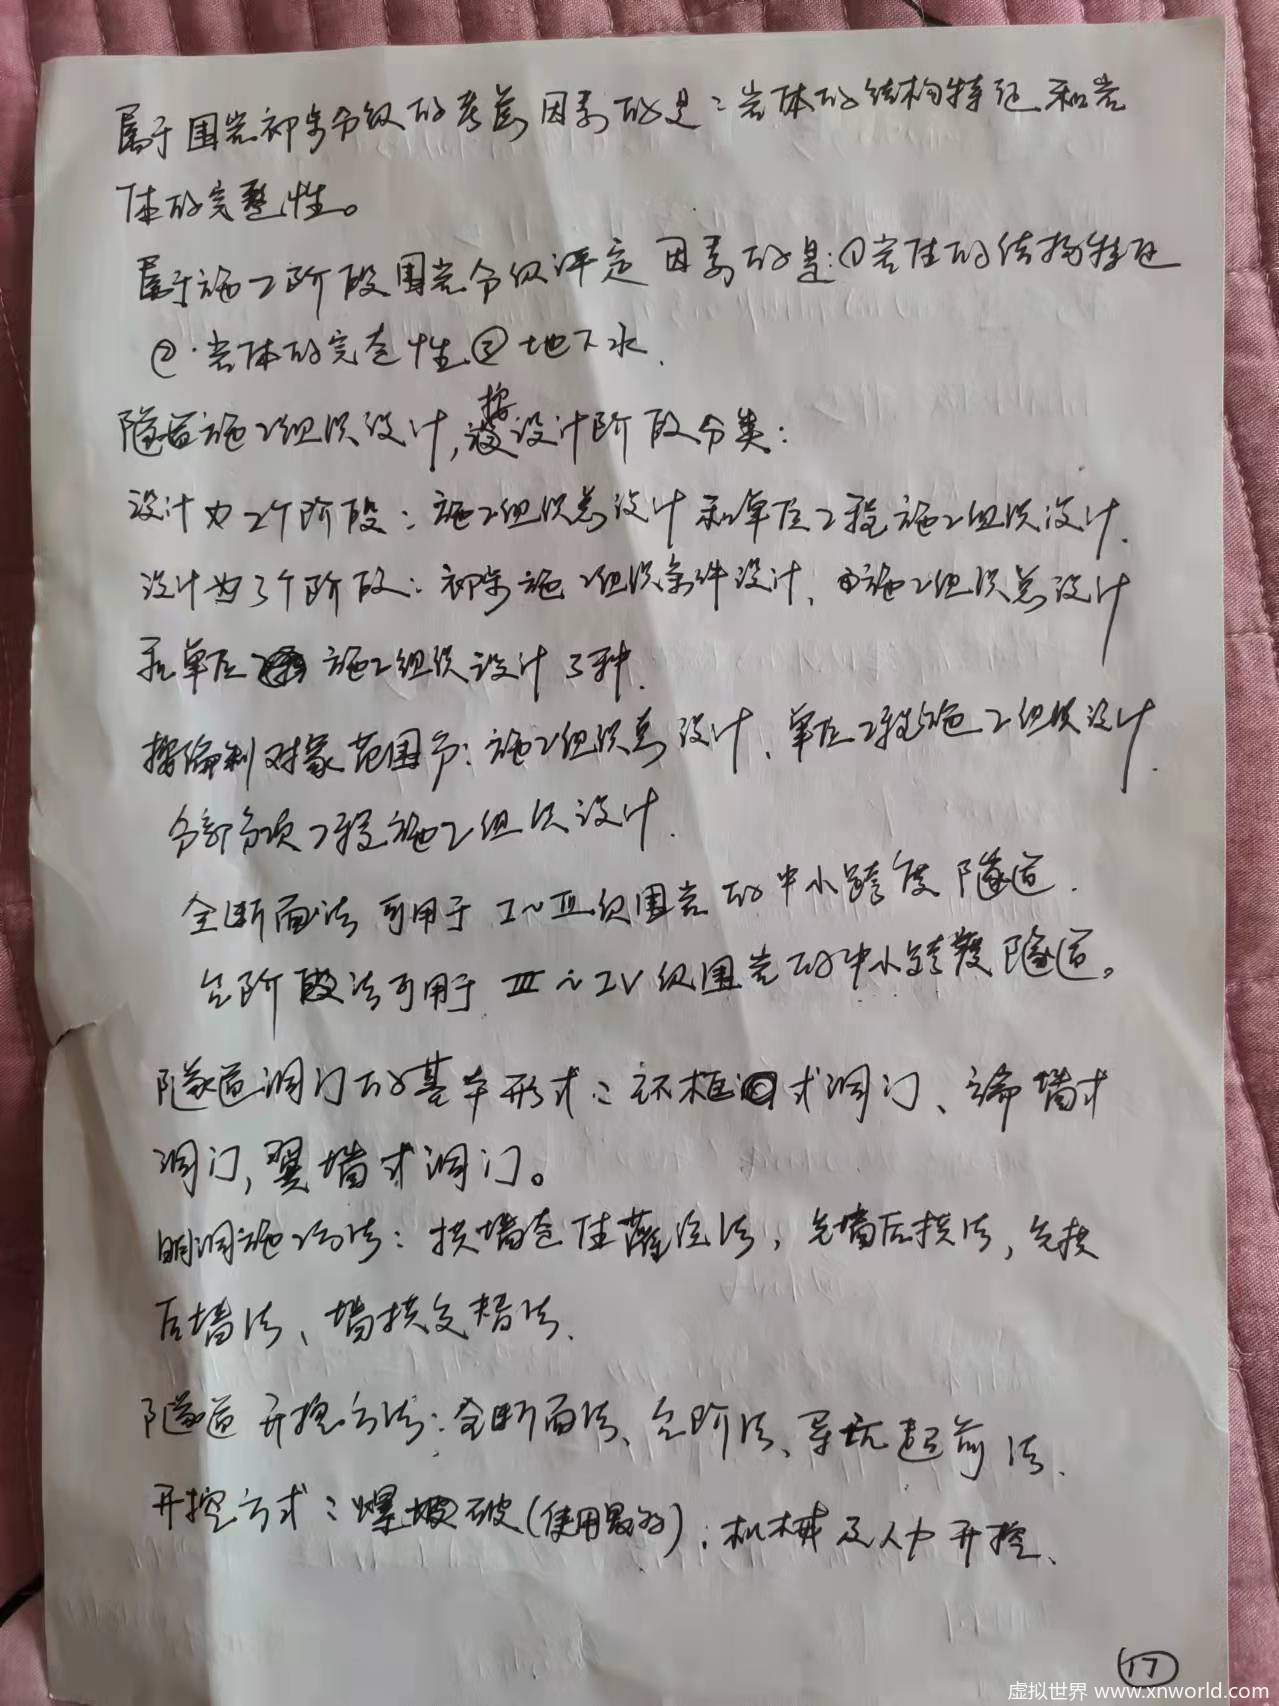 属于围岩初步分级的考虑因素的是：岩体的结构特征和岩
体的完整性。
属于施工阶段围岩分级评定因素的是：①岩性的结构特征
②.岩体的完整性③地下水.
隧道施工组织设计,按设计阶段分类：
设计为2个阶段：施工组织总设计和单位工程施工组织设计.
设计为3个阶段：初步施工组织条件设计、施工组织总设计
和单位工程施工组织设计3种.
按编制对象范围分：施工组织总设计、单位工程施工组织设计.
分部分项工程施工组织设计.
全断面法可用于I~III级围岩的中小跨度隧道.
台阶段法可用于III~IV级围岩的中小跨度隧道。
隧道洞门的基本形式：环框式洞门、端墙式
洞门,翼墙式洞门。
明洞施工方法：拱墙整体灌注法,先墙后拱法,先拱
后墙法、墙拱交替法.
隧道开挖方法：全断面法、台阶法、导坑超前法.
开挖方式：爆破(使用最多).机械及人力开挖.
17
虚拟世界 www.xnworld.com